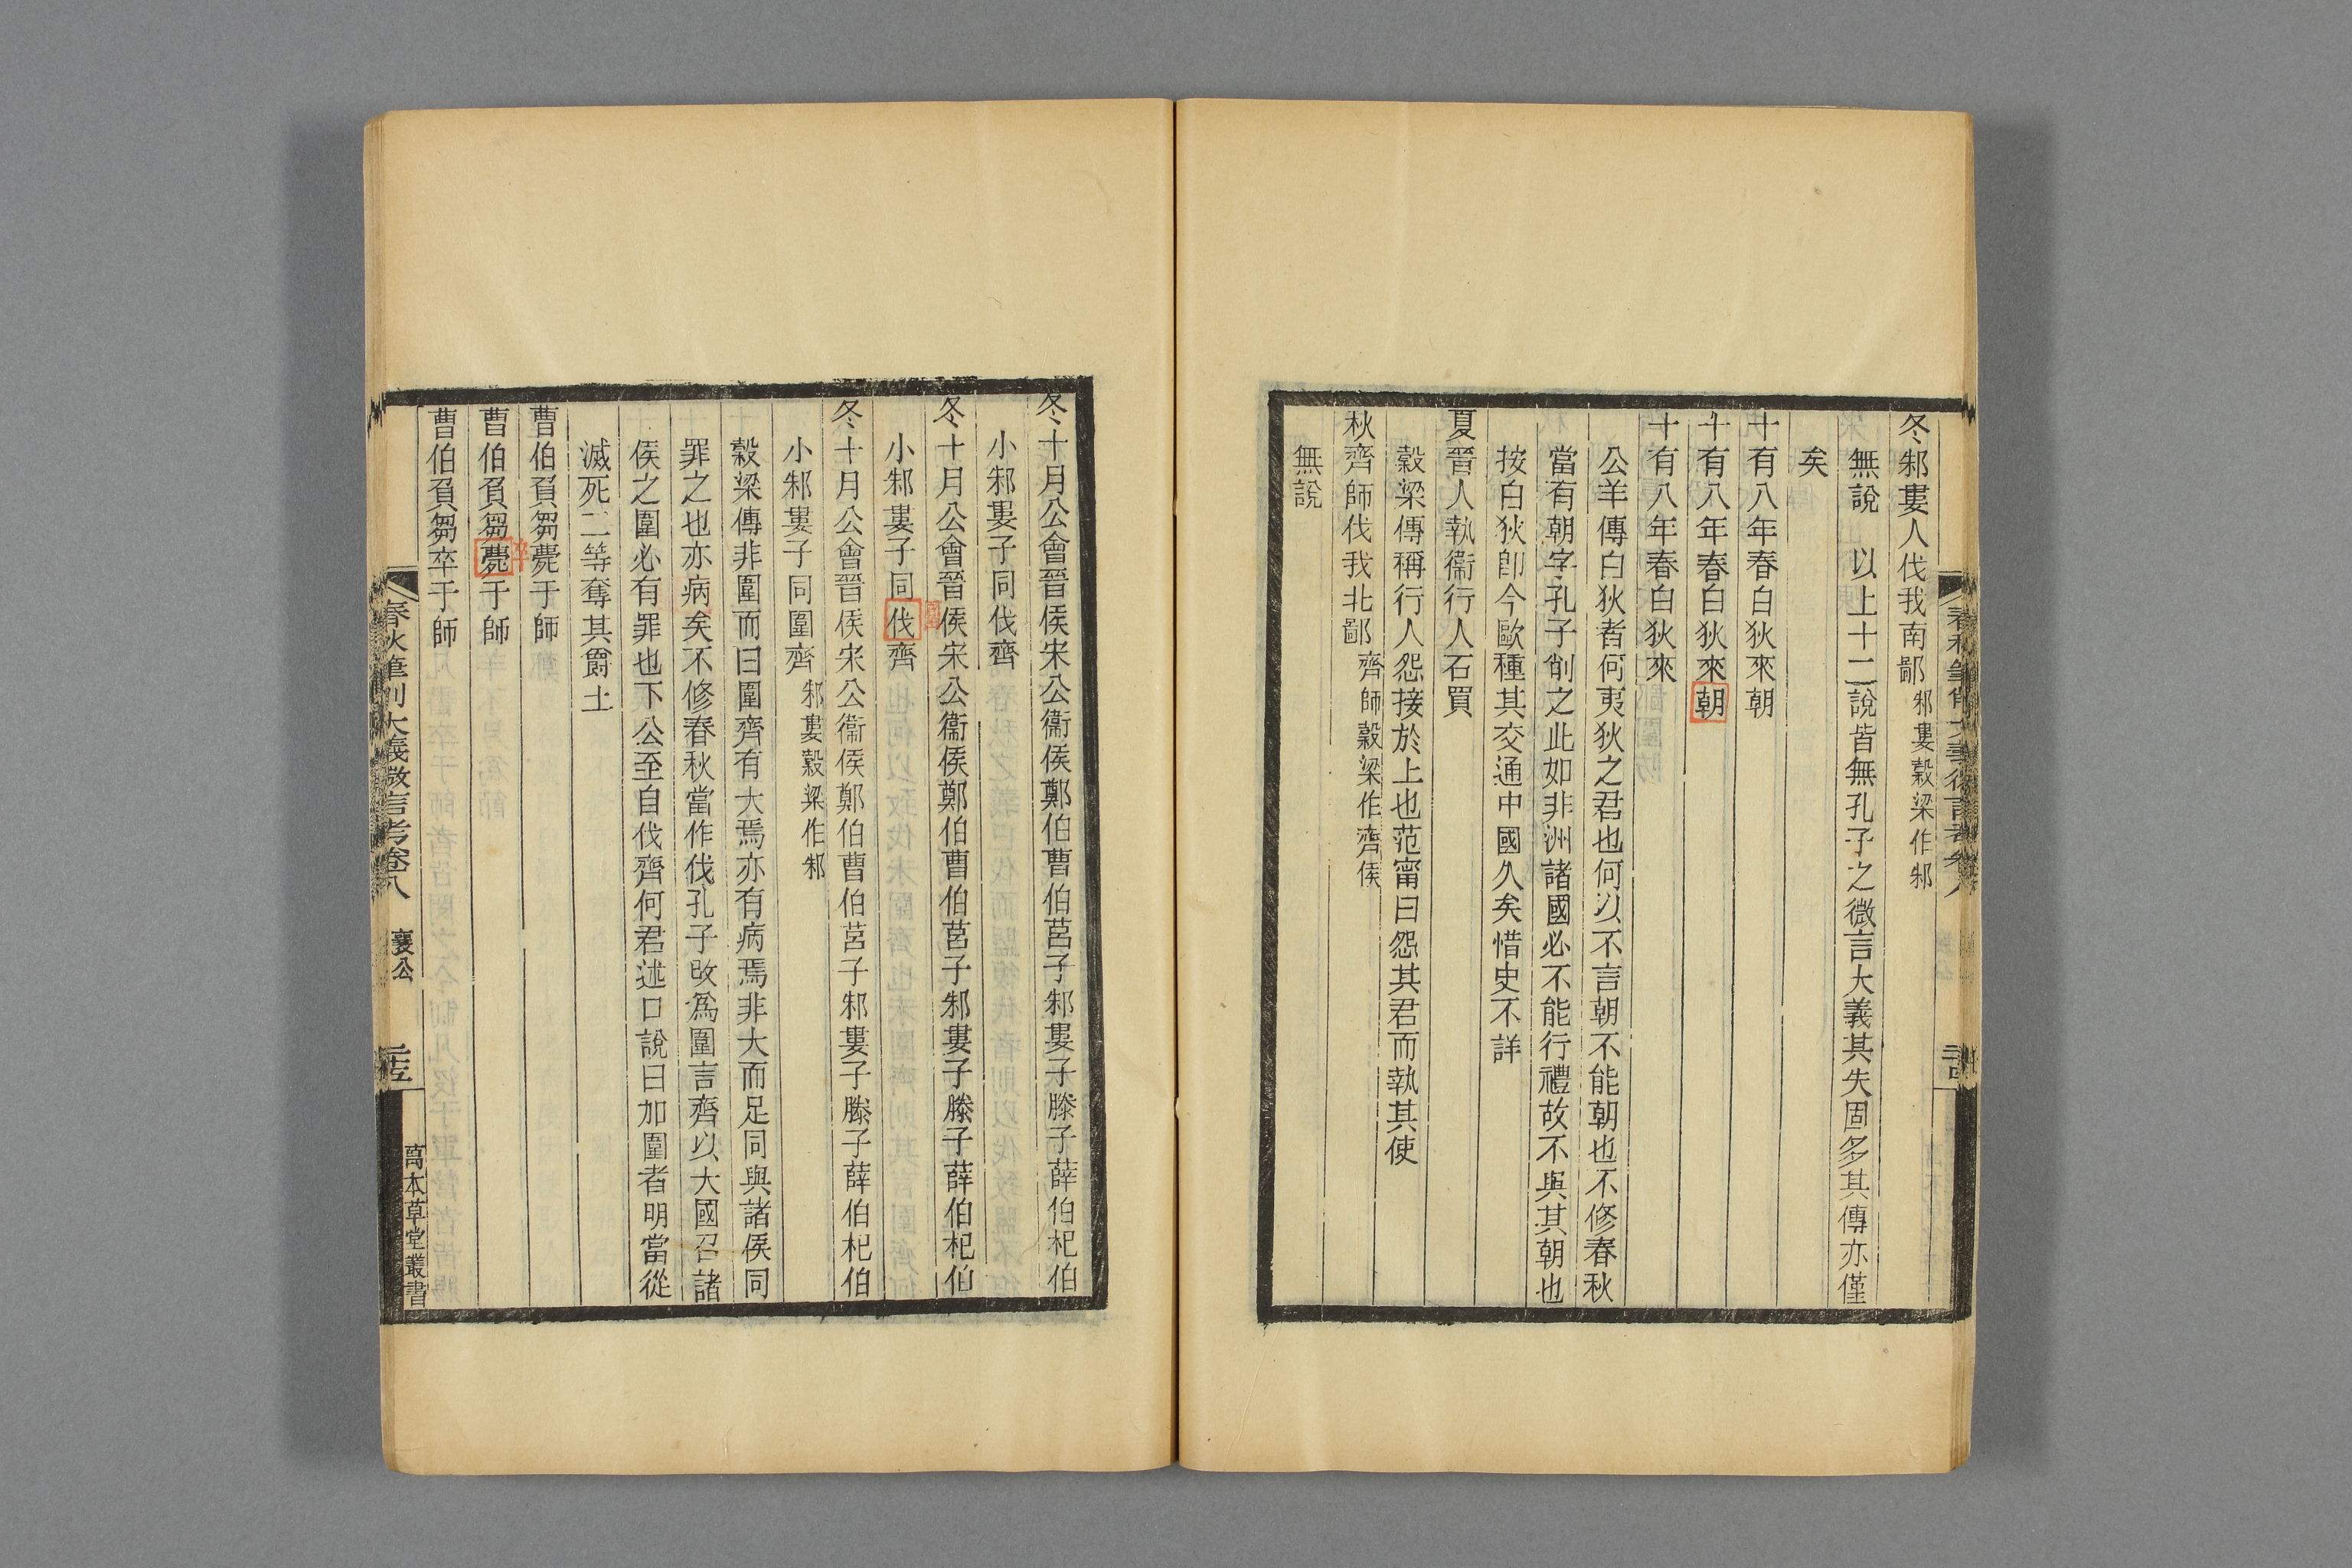 冬邾婁人伐我南鄙邾婁穀梁作邾
無說　以上十二說皆無孔子之微言大義其失固多其傳亦僅
矣
十有八年春白狄來朝
十有八年春白狄來朝
十有八年春白狄來
公羊傳白狄者何夷狄之君也何以不言朝不能朝也不修春秋
當有朝字孔子削之此如非洲諸國必不能行禮故不與其朝也
按白狄卽今歐種其交通中國久矣惜史不詳
夏晉人執衞行人石買
穀梁傳稱行人怨接於上也范甯曰怨其君而執其使
秋齊師伐我北鄙齊師穀梁作齊侯
無說
冬十月公會晉侯宋公衞侯鄭伯曹伯莒子邾婁子滕子薛伯杞伯
小邾婁子同伐齊
冬十月公會晉侯宋公衞侯鄭伯曹伯莒子邾婁子滕子薛伯杞伯
小邾婁子同伐齊
圍
冬十月公會晉侯宋公衞侯鄭伯曹伯莒子邾婁子滕子薛伯杞伯
小邾婁子同圍齊邾婁穀梁作邾
穀梁傳非圍而曰圍齊有大焉亦有病焉非大而足同與諸侯同
罪之也亦病矣不修春秋當作伐孔子改爲圍言齊以大國召諸
侯之圍必有罪也下公至自伐齊何君述口說曰加圍者明當從
滅死二等奪其爵土
曹伯負芻薨于師
曹伯負芻薨于師
卒
曹伯負芻卒于師
春秋筆削大義微言考卷八　襄公
萬木草堂叢書